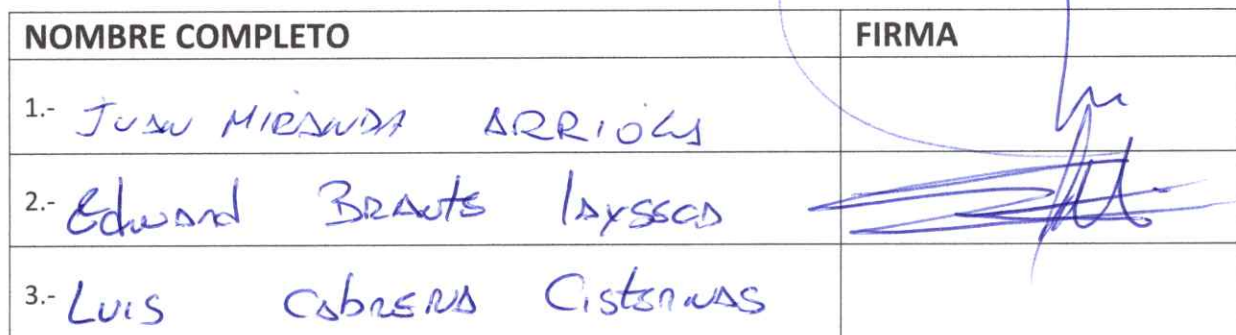 NOMBRE COMPLETO FIRMA
1.- JUAN MIRANDA ARRIOLA
2.- Eduard Brauts
3.- Luis Cabrera Cisternas